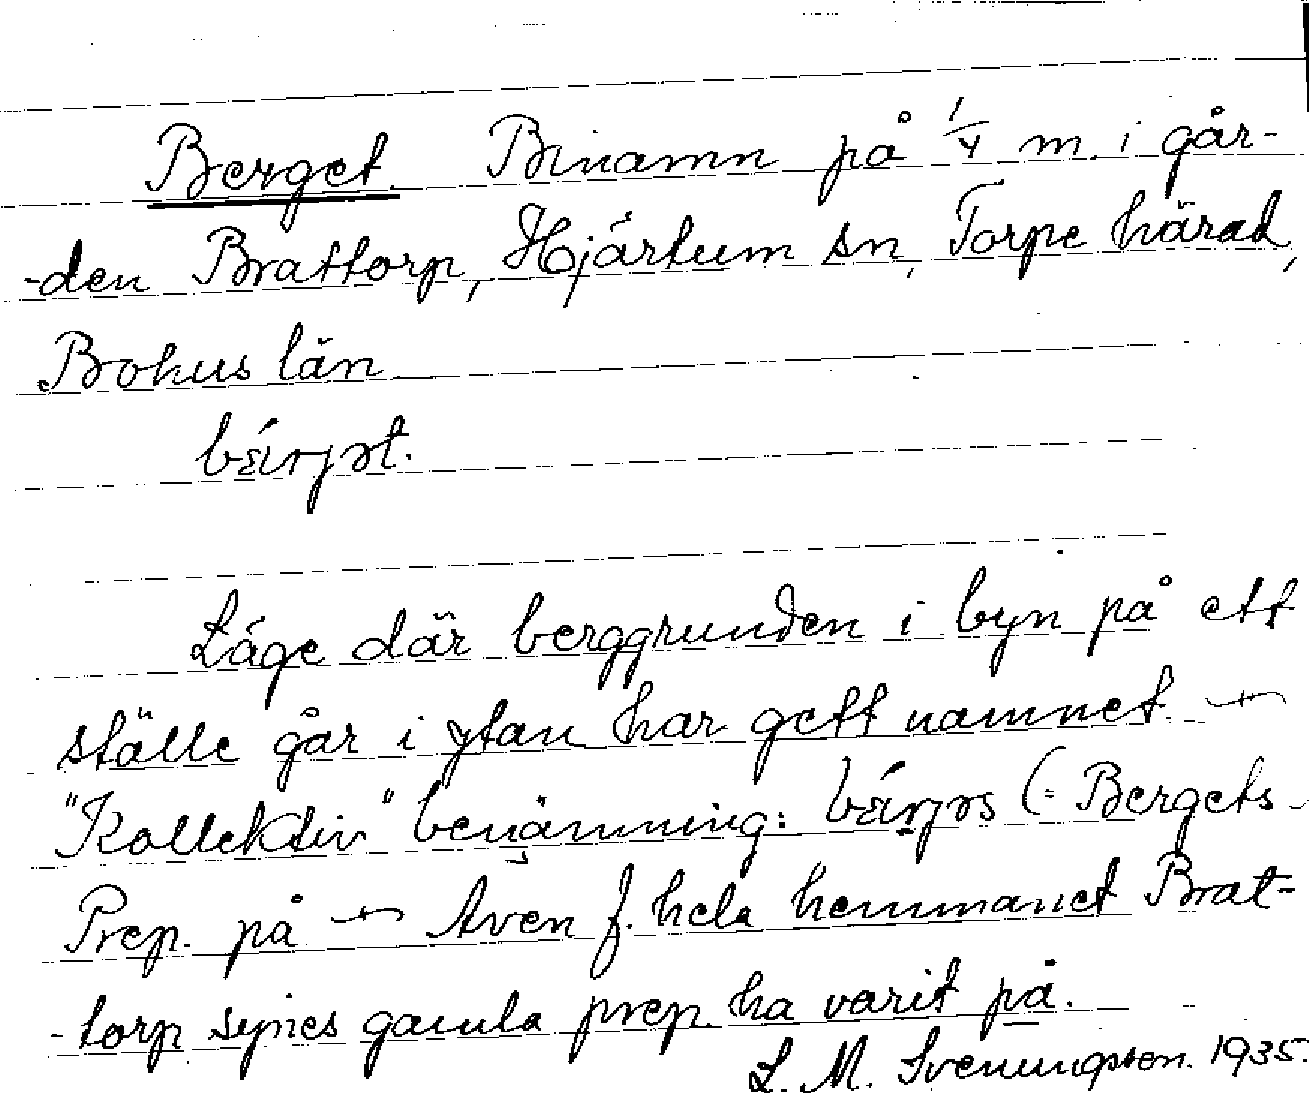 Berget. Binamn på 1/4 m. i går-
-den Brattorp, Hjärtum sn, Torpe härad,
Bohus län
Läge där berggrunden i byn på ett
ställe går i ytan har gett namnet. —
"Kollektiv" benämning: (= Bergets-
Prep. på — Även f. hela hemmanet Brat-
-torp synes gamla prep. ha varit på.
L. M. Svenungsson. 1935.